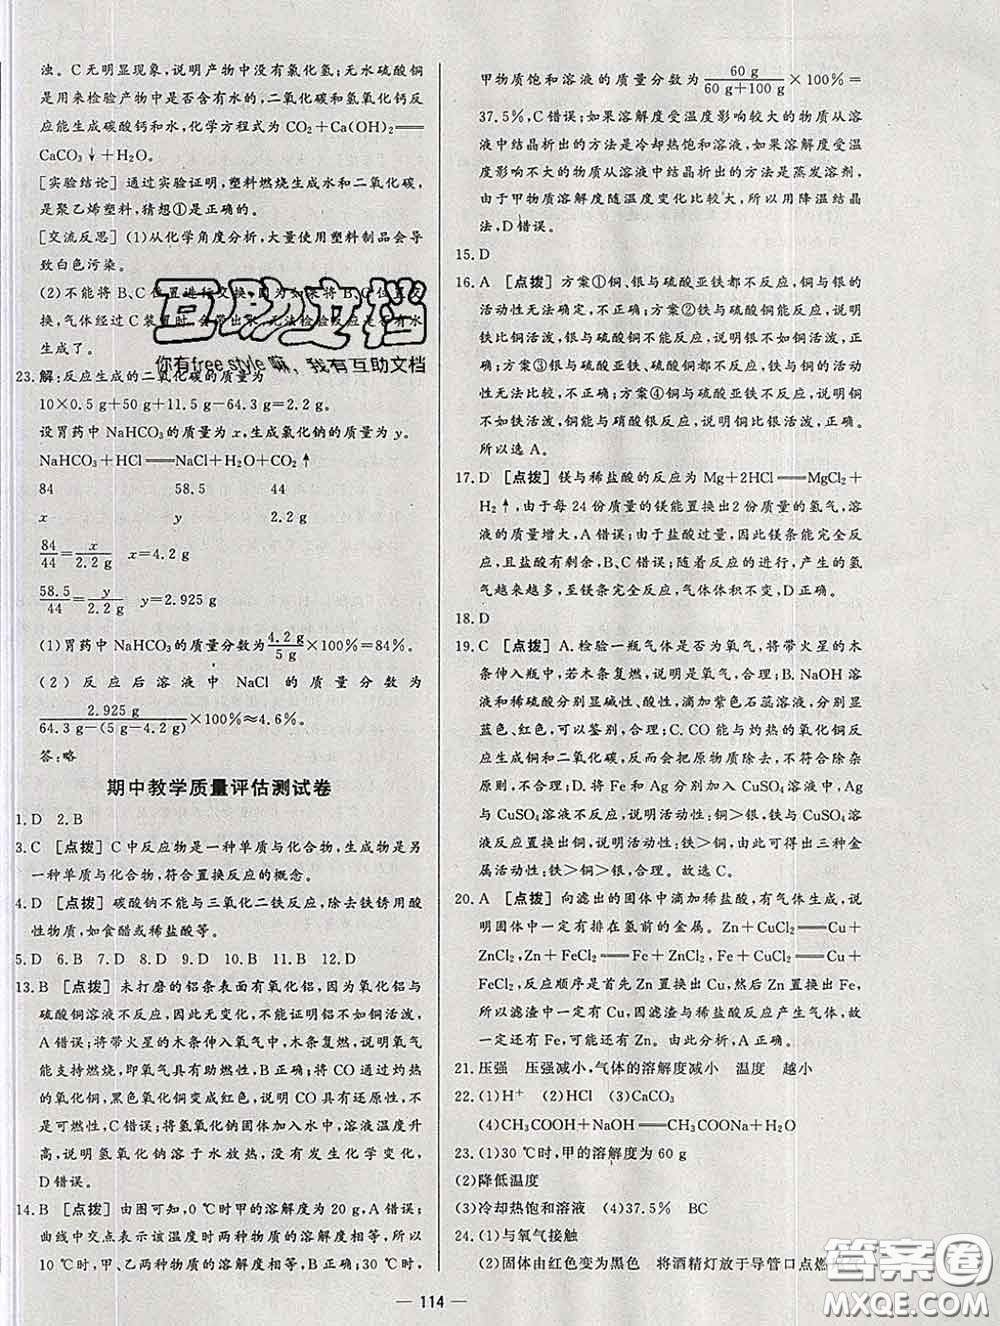 浊。C无明显现象，说明产物中没有氯化氢；无水硫酸铜
是用来检验产物中是否含有水的，二氧化碳和氢氧化钙反
应能生成碳酸钙和水，化学方程式为 CO₂＋Ca(OH)₂══
CaCO₃↓＋H₂O。
[实验结论] 通过实验证明，塑料燃烧生成水和二氧化碳，
是聚乙烯塑料，猜想①是正确的。
[交流反思] (1)从化学角度分析，大量使用塑料制品会导
致白色污染。
(2)不能将 B、C 位置进行交换，因为如果将 B、C 位置互
换，气体经过 C 装置时，会带出水，无法检验反应是否有水
生成了。
互助文档
你有free style嘛，我有互助文档
23.解：反应生成的二氧化碳的质量为
10×0.5 g＋50 g＋11.5 g－64.3 g＝2.2 g。
设胃药中 NaHCO₃的质量为 x，生成氯化钠的质量为 y。
NaHCO₃＋HCl══NaCl＋H₂O＋CO₂↑
84 58.5 44
x y 2.2 g
84/44＝x/2.2 g x＝4.2 g
58.5/44＝y/2.2 g y＝2.925 g
(1)胃药中 NaHCO₃的质量分数为4.2 g/5 g×100%＝84%。
(2) 反应后溶液中 NaCl 的质量分数为
2.925 g/64.3 g－(5 g－4.2 g)×100%≈4.6%。
答：略
期中教学质量评估测试卷
1. D 2. B
3. C [点拨] C 中反应物是一种单质与化合物，生成物是另
一种单质与化合物，符合置换反应的概念。
4. D [点拨] 碳酸钠不能与三氧化二铁反应，除去铁锈用酸
性物质，如食醋或稀盐酸等。
5. D 6. B 7. D 8. D 9. D 10. B 11. B 12. D
13. B [点拨] 未打磨的铝条表面有氧化铝，因为氧化铝与
硫酸铜溶液不反应，因此无变化，不能证明铝不如铜活泼，
A 错误；将带火星的木条伸入氧气中，木条复燃，说明氧气
能支持燃烧，氧气具有助燃性，B 正确；将 CO 通过灼热
的氧化铜，黑色氧化铜变成红色，说明 CO 具有还原性，不
是可燃性，C 错误；将氢氧化钠固体加入水中，溶液温度升
高，说明氢氧化钠溶于水放热，没有发生化学变化，
D 错误。
14. B [点拨] 由图可知，0 ℃时甲的溶解度为 20 g，A 错误；
曲线中交点表示该温度时两种物质的溶解度相等，所以
10 ℃时，甲、乙两种物质的溶解度相等，B 正确；30 ℃时，
甲物质饱和溶液的质量分数为60 g/60 g＋100 g×100%＝
37.5%，C 错误；如果溶解度受温度影响较大的物质从溶
液中结晶析出的方法是冷却热饱和溶液，如果溶解度受温
度影响不大的物质从溶液中结晶析出的方法是蒸发溶剂，
由于甲物质溶解度随温度变化比较大，所以用降温结晶
法，D 错误。
15. D
16. A [点拨] 方案①铜、银与硫酸亚铁都不反应，铜与银的
活动性无法确定，不正确；方案②铁与硫酸铜反应，说明铁
比铜活泼，银与硫酸铜不反应，说明银不如铜活泼，正
确；方案③银与硫酸亚铁、硫酸铜都不反应，铁、铜的活动
性无法比较，不正确；方案④铜与硫酸亚铁不反应，说明铜
不如铁活泼，铜能与硝酸银反应，说明铜比银活泼，正确。
所以选 A。
17. D [点拨] 镁与稀盐酸的反应为 Mg＋2HCl══MgCl₂＋
H₂↑，由于每 24 份质量的镁能置换出 2 份质量的氢气，溶
液的质量增大，A 错误；由于盐酸过量，因此镁条能完全反
应，且盐酸有剩余，B、C 错误；随着反应的进行，产生的氢
气越来越多，至镁条完全反应，气体体积不变，D 正确。
18. D
19. C [点拨] A. 检验一瓶气体是否为氧气，将带火星的木
条伸入瓶中，若木条复燃，说明是氧气，合理；B. NaOH 溶
液和稀硫酸分别显碱性、酸性，滴加紫色石蕊溶液，分别显
蓝色、红色，可以鉴别，合理；C. CO 能与灼热的氧化铜反
应生成铜和二氧化碳，把原物质除去，不是除去杂质，不合
理；D. 将 Fe 和 Ag 分别加入 CuSO₄ 溶液中，Ag 与
CuSO₄溶液不反应，说明活动性：铜＞银，铁与 CuSO₄ 溶
液反应置换出铜，说明活动性：铁＞铜，可得出三种金
属活动性：铁＞铜＞银，合理。故选 C。
20. A [点拨] 向滤出的固体中滴加稀盐酸，有气体生成，说
明固体中一定有排在氢前的金属。Zn＋CuCl₂══Cu＋
ZnCl₂，Zn＋FeCl₂══Fe＋ZnCl₂，Fe＋CuCl₂══Cu＋
FeCl₂，反应顺序是首先 Zn 置换出 Cu，然后 Zn 置换出 Fe，
所以滤渣中一定有 Cu，因滤渣与稀盐酸反应产生气体，故
一定还有 Fe，可能还有 Zn。由此分析，A 正确。
21. 压强 压强减小，气体的溶解度减小 温度 越小
22. (1)H⁺ (2)HCl (3)CaCO₃
(4)CH₃COOH＋NaOH══CH₃COONa＋H₂O
23. (1)30 ℃时，甲的溶解度为 60 g
(2)降低温度
(3)冷却热饱和溶液 (4)37.5% BC
24. (1)与氧气接触
(2)固体由红色变为黑色 将酒精灯放于导管口点燃
答案圈
MXQE.COM
— 114 —